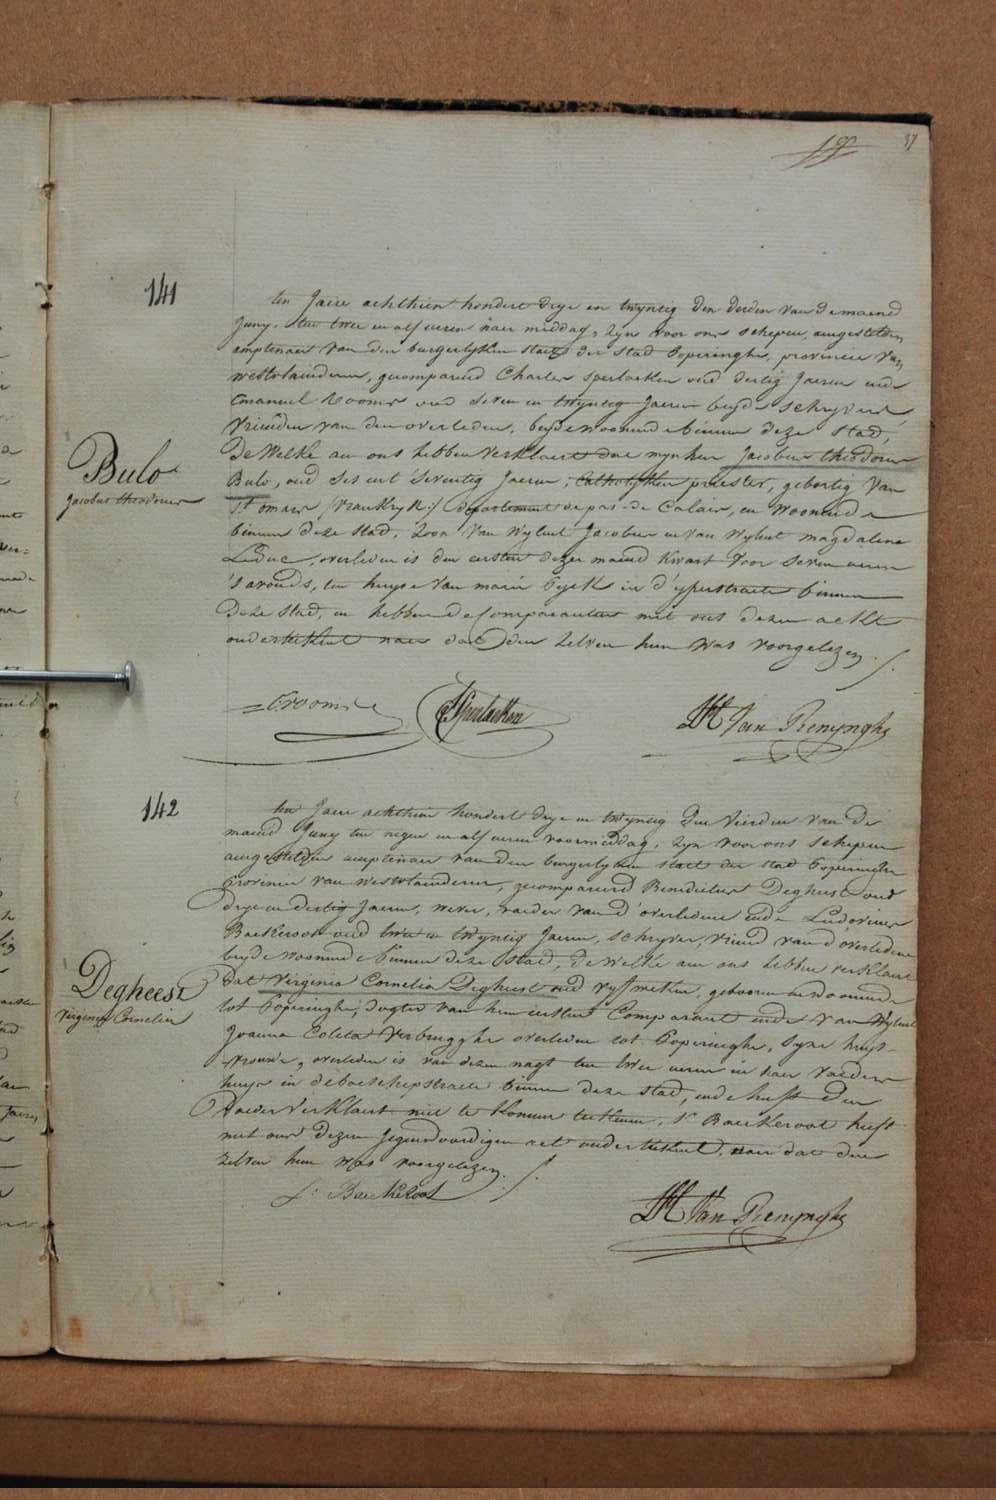 37
141
Bulo
Jacobus theodorus
ten Jaere achthien hondert drye en twyntig den derden van de maend
Juny, ten twee en alf ueren naer middag, zyn voor ons schepen, aengestelden
amptenaer van den burgerlyken staet der stad Poperinghe, provincie van
westvlaenderen, gecompareerd Charles Sperlaeken oud dertig Jaeren ende
Emanuel Rooms oud seven en twyntig Jaeren beyde schryvers
vrienden van den overleden, beyde woonende binnen deze stad,
De welke aen ons hebben verklaert dat mynheer Jacobus theodorus
Bulo, oud ses en t'seventig Jaeren, Catholyken priester, gebortig van
St omars /vrankryk:/ departement de pas-de Calais, en woonende
binnen deze stad, Zoon van wylent Jacobus en van wylent magdalena
Leduc, overleden is den eersten dezer maend kwart voor seven ueren
's avonds, ten huyse van marie Eyck in d'yperstraete binnen
deze stad, en hebben de Comparanten met ons dezen akt
onderteekent naer dat den zelven hun was voorgelezen ./.
E rooms
C Sperlaeken
JH Van Renynghe
142
Degheest
virginia Cornelia
ten Jaere achthien hondert drye en twyntig den vierden van de
maend Juny ten negen en alf ueren voormiddag, zyn voor ons schepen
aengestelden amptenaer van den burgerlyken staet der stad Poperinghe
Provincie van westvlaenderen, gecompareerd Benedictus Degheest oud
drye en dertig Jaeren, wever, vaeder van d'overledene ende Ludovicus
Baekeroot oud twee en twyntig Jaeren, schryver, vriend van d'overledene
beyde woonende binnen deze stad, de welke aen ons hebben verklaert
dat Virginia Cornelia Degheest oud vyf weken, geboren en woonende
tot Poperinghe, dogter van hun eersten Comparant ende van wylent
Joanna Coleta Verbrugghe overleden tot Poperinghe, syne huys-
vrouwe, overleden is van dezen nagt ten twee ueren in haer vaeders
huys in de boeschepstraete binnen deze stad, ende heeft den
vaeder verklaert niet te konnen teekenen, Sr Baekeroot heeft
met ons dezen Jegenwoordigen act onderteekent, naer dat den
zelven hun was voorgelezen ./.
L: Baekeroot
JH Van Renynghe